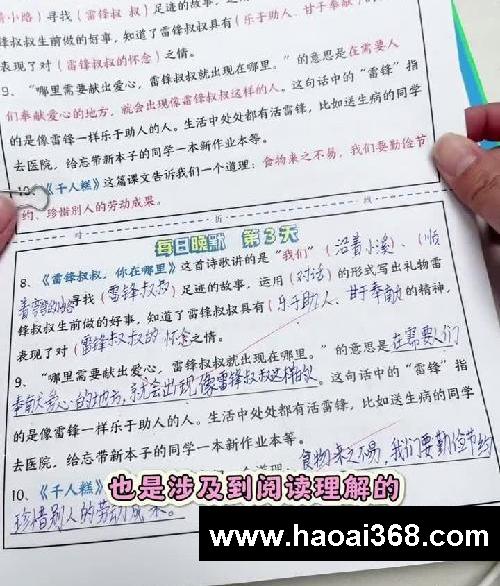 青小路）寻找（雷锋叔 叔）足迹的故事，
锋叔叔生前做的好事，知道了雷锋叔叔具有（乐于助人、甘于奉献）的
表现了对（雷锋叔叔的怀念）之情。
9、“哪里需要献出爱心，雷锋叔叔就出现在哪里。”的意思是在需要人
们奉献爱心的地方，就会出现像雷锋叔叔这样的人。这句话中的“雷锋”指
的是像雷锋一样乐于助人的人。生活中处处都有活雷锋，比如送生病的同学
去医院，给忘带新本子的同学一本新作业本等。
10、《千人糕》这篇课文告诉我们一个道理：食物来之不易，我们要勤俭节
约、珍惜别人的劳动成果。
对 折 线
每日晚默 第3天
8、《雷锋叔叔，你在哪里》这首诗歌讲的是“我们”（沿着小溪）、（沿
着弯弯的小路寻找（雷锋叔叔）足迹的故事，运用（对话）的形式写出礼物雷
锋叔叔生前做的好事，知道了雷锋叔叔具有（乐于助人、甘于奉献的精神，
表现了对（雷锋叔叔的怀念之情。
9、“哪里需要献出爱心，雷锋叔叔就出现在哪里。”的意思是在需要人们
奉献爱心的地方，就会出现像雷锋叔叔这样的人。这句话中的“雷锋”指
的是像雷锋一样乐于助人的人。生活中处处都有活雷锋，比如送生病的同学
去医院，给忘带新本子的同学一本新作业本等。
10、《千人糕》 道理：食物来之不易，我们要勤俭节约
珍惜别人的劳动成果。
也是涉及到阅读理解的
www.haoai368.com